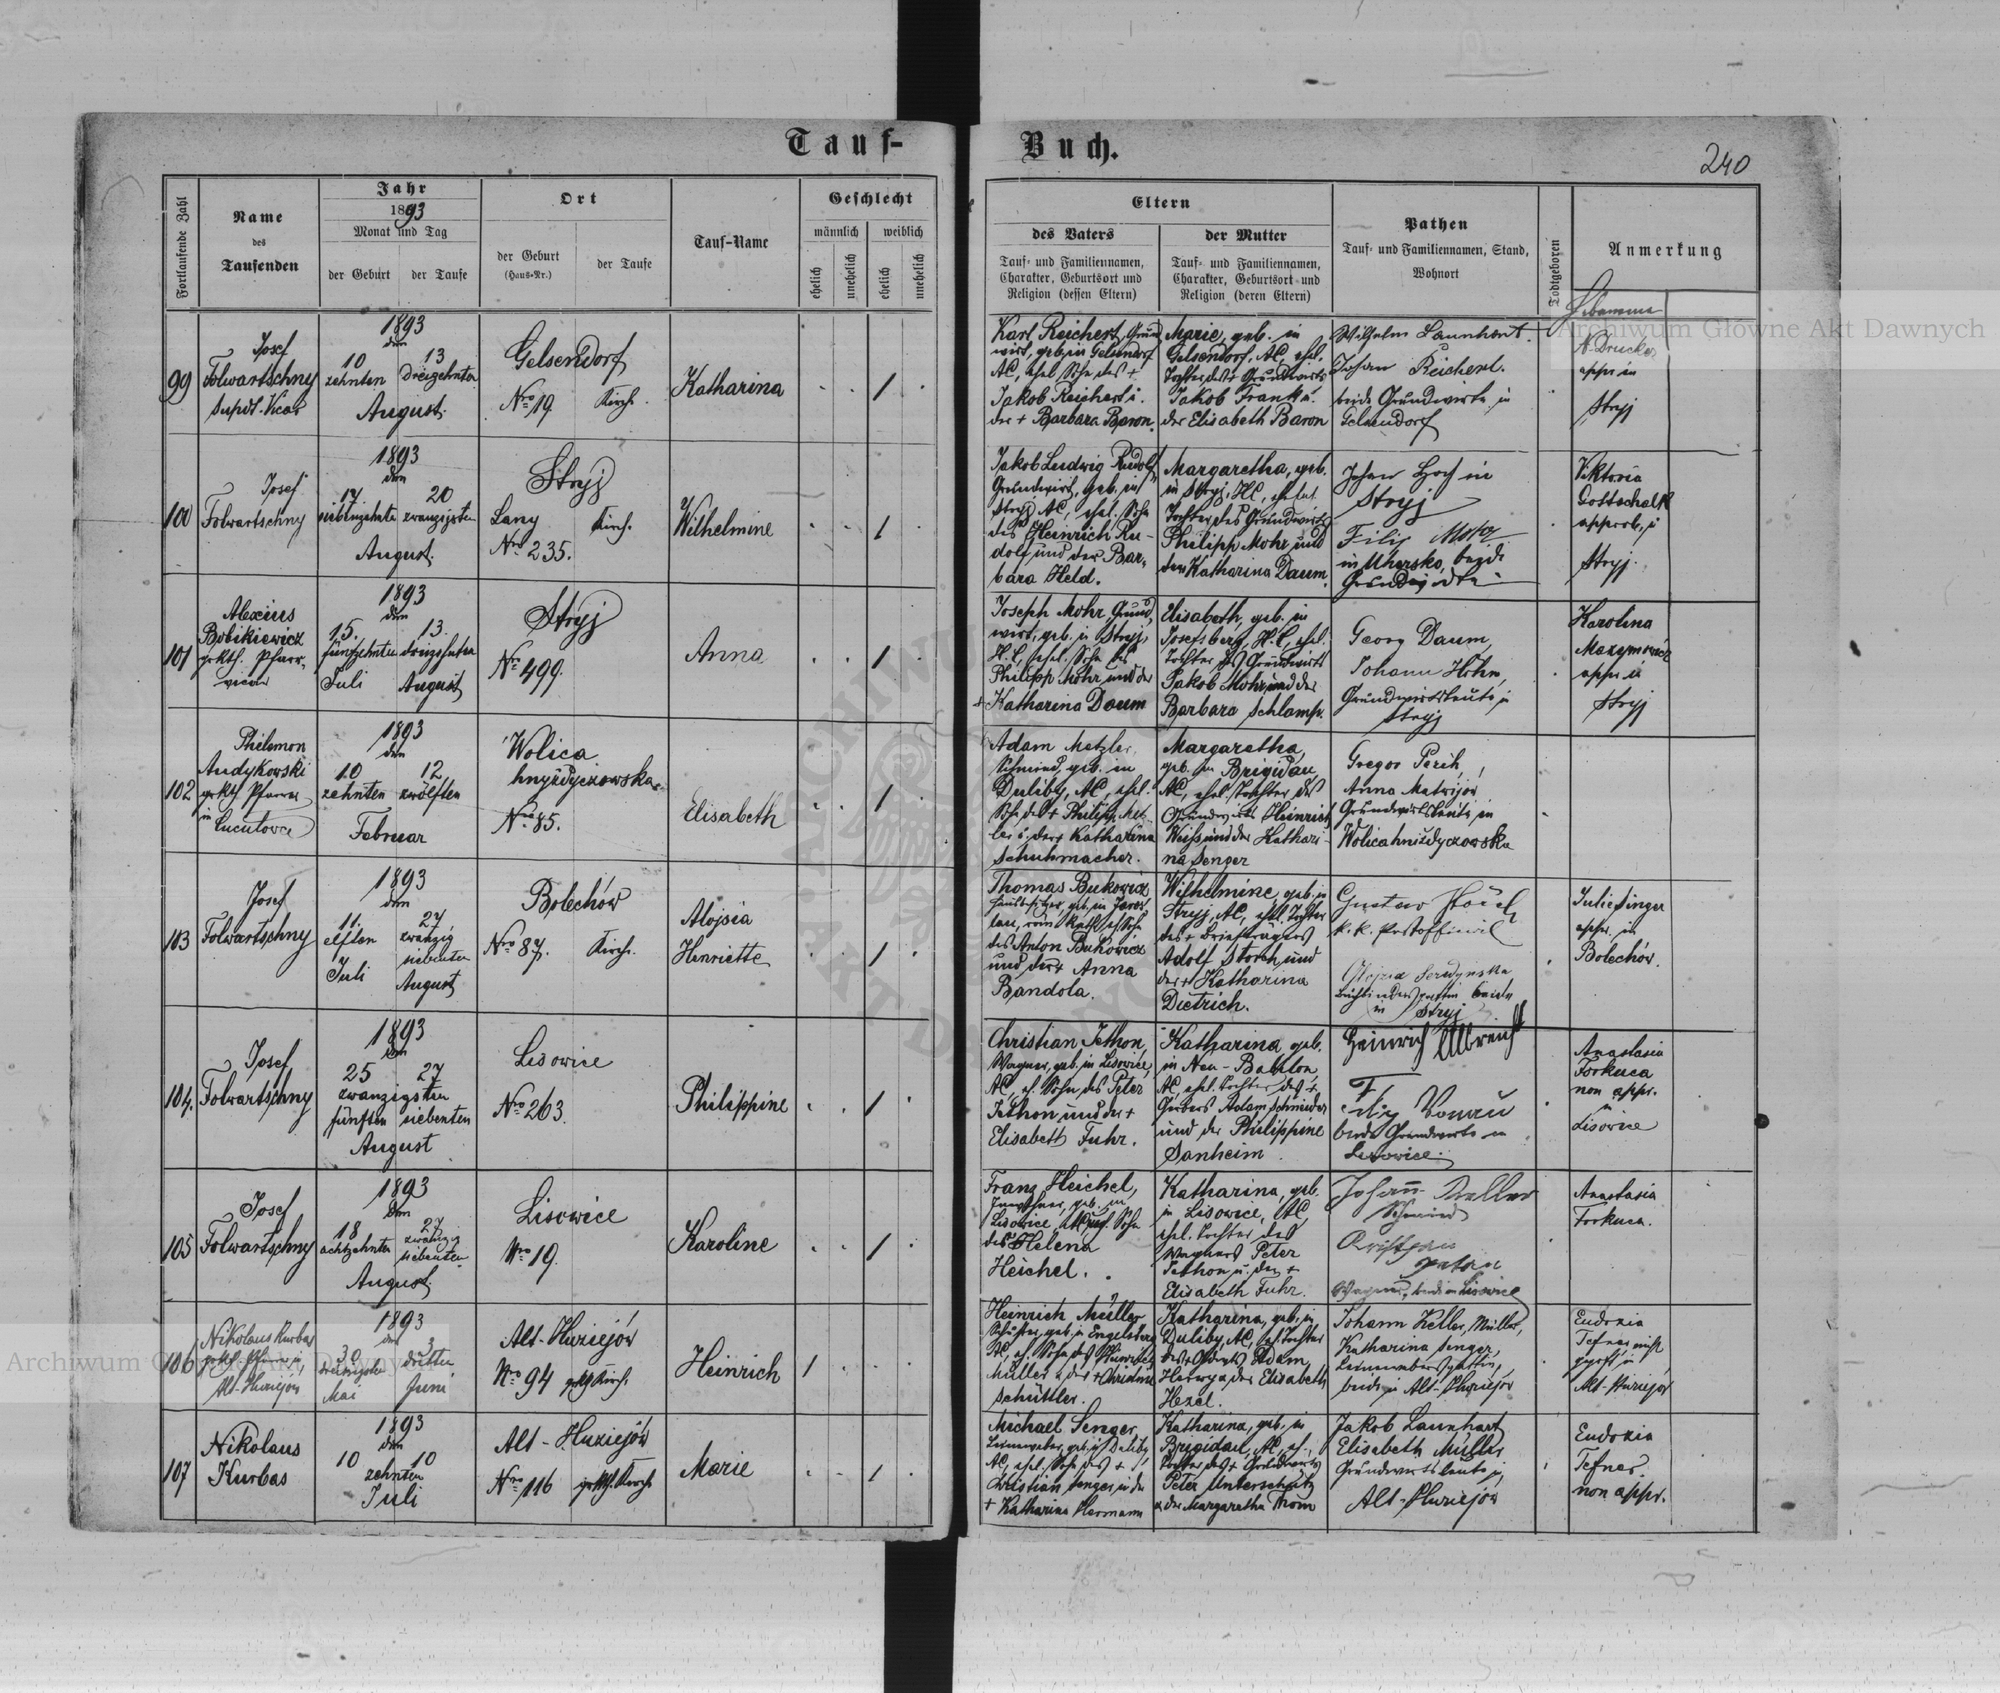 Tauf-
Buch.
240
Fortlaufende Zahl
Name
des
Taufenden
Jahr
1893
Monat und Tag
der Geburt
der Taufe
Ort
der Geburt
(Haus-Nr.)
der Taufe
Tauf-Name
Geschlecht
männlich
weiblich
ehelich
unehelich
ehelich
unehelich
Eltern
des Vaters
Tauf- und Familiennamen,
Charakter, Geburtsort und
Religion (dessen Eltern)
der Mutter
Tauf- und Familiennamen,
Charakter, Geburtsort und
Religion (deren Eltern)
Pathen
Tauf- und Familiennamen, Stand,
Wohnort
Todtgeboren
Anmerkung
Hebamme
99
Josef
Folwartschny
Supdt. Vicar
1893
den
10
zehnten
13
dreizehnten
August
Gelsendorf
Nro 19
Kirche
Katharina
1
Karl Reichert, Grund
wirt, geb. in Gelsendorf
AC, ehel. Sohn des +
Jakob Reichert u.
der + Barbara Baron.
Marie, geb. in
Gelsendorf, AC, ehel.
Tochter des + Grundwirts
Jakob Frank u.
der Elisabeth Baron
Wilhelm Launhart.
Johan Reichert.
beide Grundwirte in
Gelsendorf
N. Drucker
appr. in
Stryj
100
Josef
Folwartschny
1893
den
17.
siebenzehnten
20
zwanzigsten
August
Stryj
Lany
Nro 235.
Kirche
Wilhelmine
1
Jakob Ludwig Rudolf
Grundwirt, geb. in
Stryj AC, ehel. Sohn
des Heinrich Ru-
dolf und der Bar-
bara Held.
Margaretha, geb.
in Stryj, HC,
Tochter des Grundwirts
Philipp Mohr und
der Katharina Daum.
Johan Hoch in
Stryj
Filip
in Uhersko, beide
Grundwirthe
Viktoria
Gottschalk
approb. in
Stryj.
101
Alexius
Bobikiewicz
grkth. Pfarr-
1893
den
15.
fünfzehnten
Juli
13.
dreizehnten
August
Stryj
Nro 499.
Anna
1
Joseph Mohr, Grund
wirt, geb. in Stryj,
H.C, ehel. Sohn des
Philipp Mohr und der
+ Katharina Daum
Elisabeth, geb. in
Josefsberg, H.C, ehel.
Tochter des Grundwirts
Jakob Mohr und der
Barbara Schlamp.
Georg Daum,
Johann Höhn,
Grundwirtsleute in
Stryj
Karolina
appr. in
Stryj
102
Philemon
Andykowski
grkth. Pfarrer
in
1893
den
10
zehnten
12
zwölften
Februar
Wolica
hnyzdyczowska
Nro 85.
Elisabeth
1
Adam Metzler,
Schmied, geb. in
Duliby, AC, ehel.
Sohn des + Philipp Metz-
ler u. der + Katharina
Schuhmacher.
Margaretha,
geb. in Brigidau
AC, ehel. Tochter des
Grundwirts Heinrich
Weiss und der Kathari-
na Senger
Gregor Perih,
Anna Matwijów
Grundwirtsleute in
Wolica hnizdyczowska
103
Josef
Folwartschny
1893
den
11.
elften
Juli
27
zwanzig
siebenten
August
Bolechów
Nro 87.
Kirche
Alojsia
Henriette
1
Thomas Bukowicz
Hausbesitzer, geb. in Jaros-
lau, röm. kath. eh. Sohn
des Anton Bukowicz
und der + Anna
Bandola.
Wilhelmine, geb. in
Stryj, AC, ehel. Tochter
des + Briefträgers
Adolf Storch und
der + Katharina
Dietrich.
Gustav Störch
k.k. Postofficial
Alojza Seredynska
beide
in Stryj
Julie Singer
appr. in
Bolechów.
104.
Josef
Folwartschny
1893
den
25
27
zwanzigsten
fünften siebenten
August
Lisowice
Nro 263.
Philippine
1
Christian Jethon,
Wagner, geb. in Lisowice,
AC, eh. Sohn des Peter
Jethon und der +
Elisabeth Fuhr.
Katharina, geb.
in Neu-Babilon,
AC, ehel. Tochter des +
Gerbers Adam Schneider
und der Philippine
Sanheim.
Heinrich Ullbreich
Filip Vonau
beide Grundwirte in
Lisowice.
Anastasia
Forkuca
non appr.
in
Lisowice
105
Josef
Folwartschny
1893
den
18
achtzehnten
27
zwanzig
siebenten
August
Lisowice
Nro 19.
Karoline
1
Franz Heichel,
Inwohner, geb. in
Lisowice, AC, unehel. Sohn
der Helena
Heichel.
Katharina, geb.
in Lisowice, AC
ehel. Tochter des
Wagners Peter
Jethon u. der +
Elisabeth Fuhr.
Johann Keller
Schmied
Kristyan
Wagner, beide in Lisowice
Anastasia
Forkuca.
106
Nikolaus Kurbas
grkth. Pfarrer,
Alt-Huziejów
1893
den
30
dreissigsten
Mai
3
dritten
Juni
Alt-Huziejów
No 94
grkth. Kirche
Heinrich
1
Heinrich Müller,
Schuster, geb. in Engelsberg
AC, eh. Sohn des Heinrich
Müller u. der + Christine
Schüttler.
Katharina, geb. in
Duliby, AC, eh. Tochter
Adam
Herwy u. der Elisabeth
Hezel.
Johann Keller, Müller,
Katharina Senger,
Leinwebersgattin,
beide in Alt-Huziejów
Eudoxia
Tefner, nicht
geprft. in
Alt-Huziejów
107
Nikolaus
Kurbas
1893
den
10
10
zehnten
Juli
Alt-Huziejów
Nro 116
grkth. Kirche
Marie
1
Michael Senger,
Leinweber, geb. in Duliby
AC, ehel. Sohn des +
Christian Senger u. der
+ Katharina Hermann
Katharina, geb. in
Brigidau, AC, eh.
Tochter des + Grundwirts
Peter Unterschütz
u. der Margaretha Thom
Jakob Launhart
Elisabeth Müller
Grundwirtsleute in
Alt-Huziejów
Eudoxia
Tefner
non appr.
Archiwum Główne Akt Dawnych